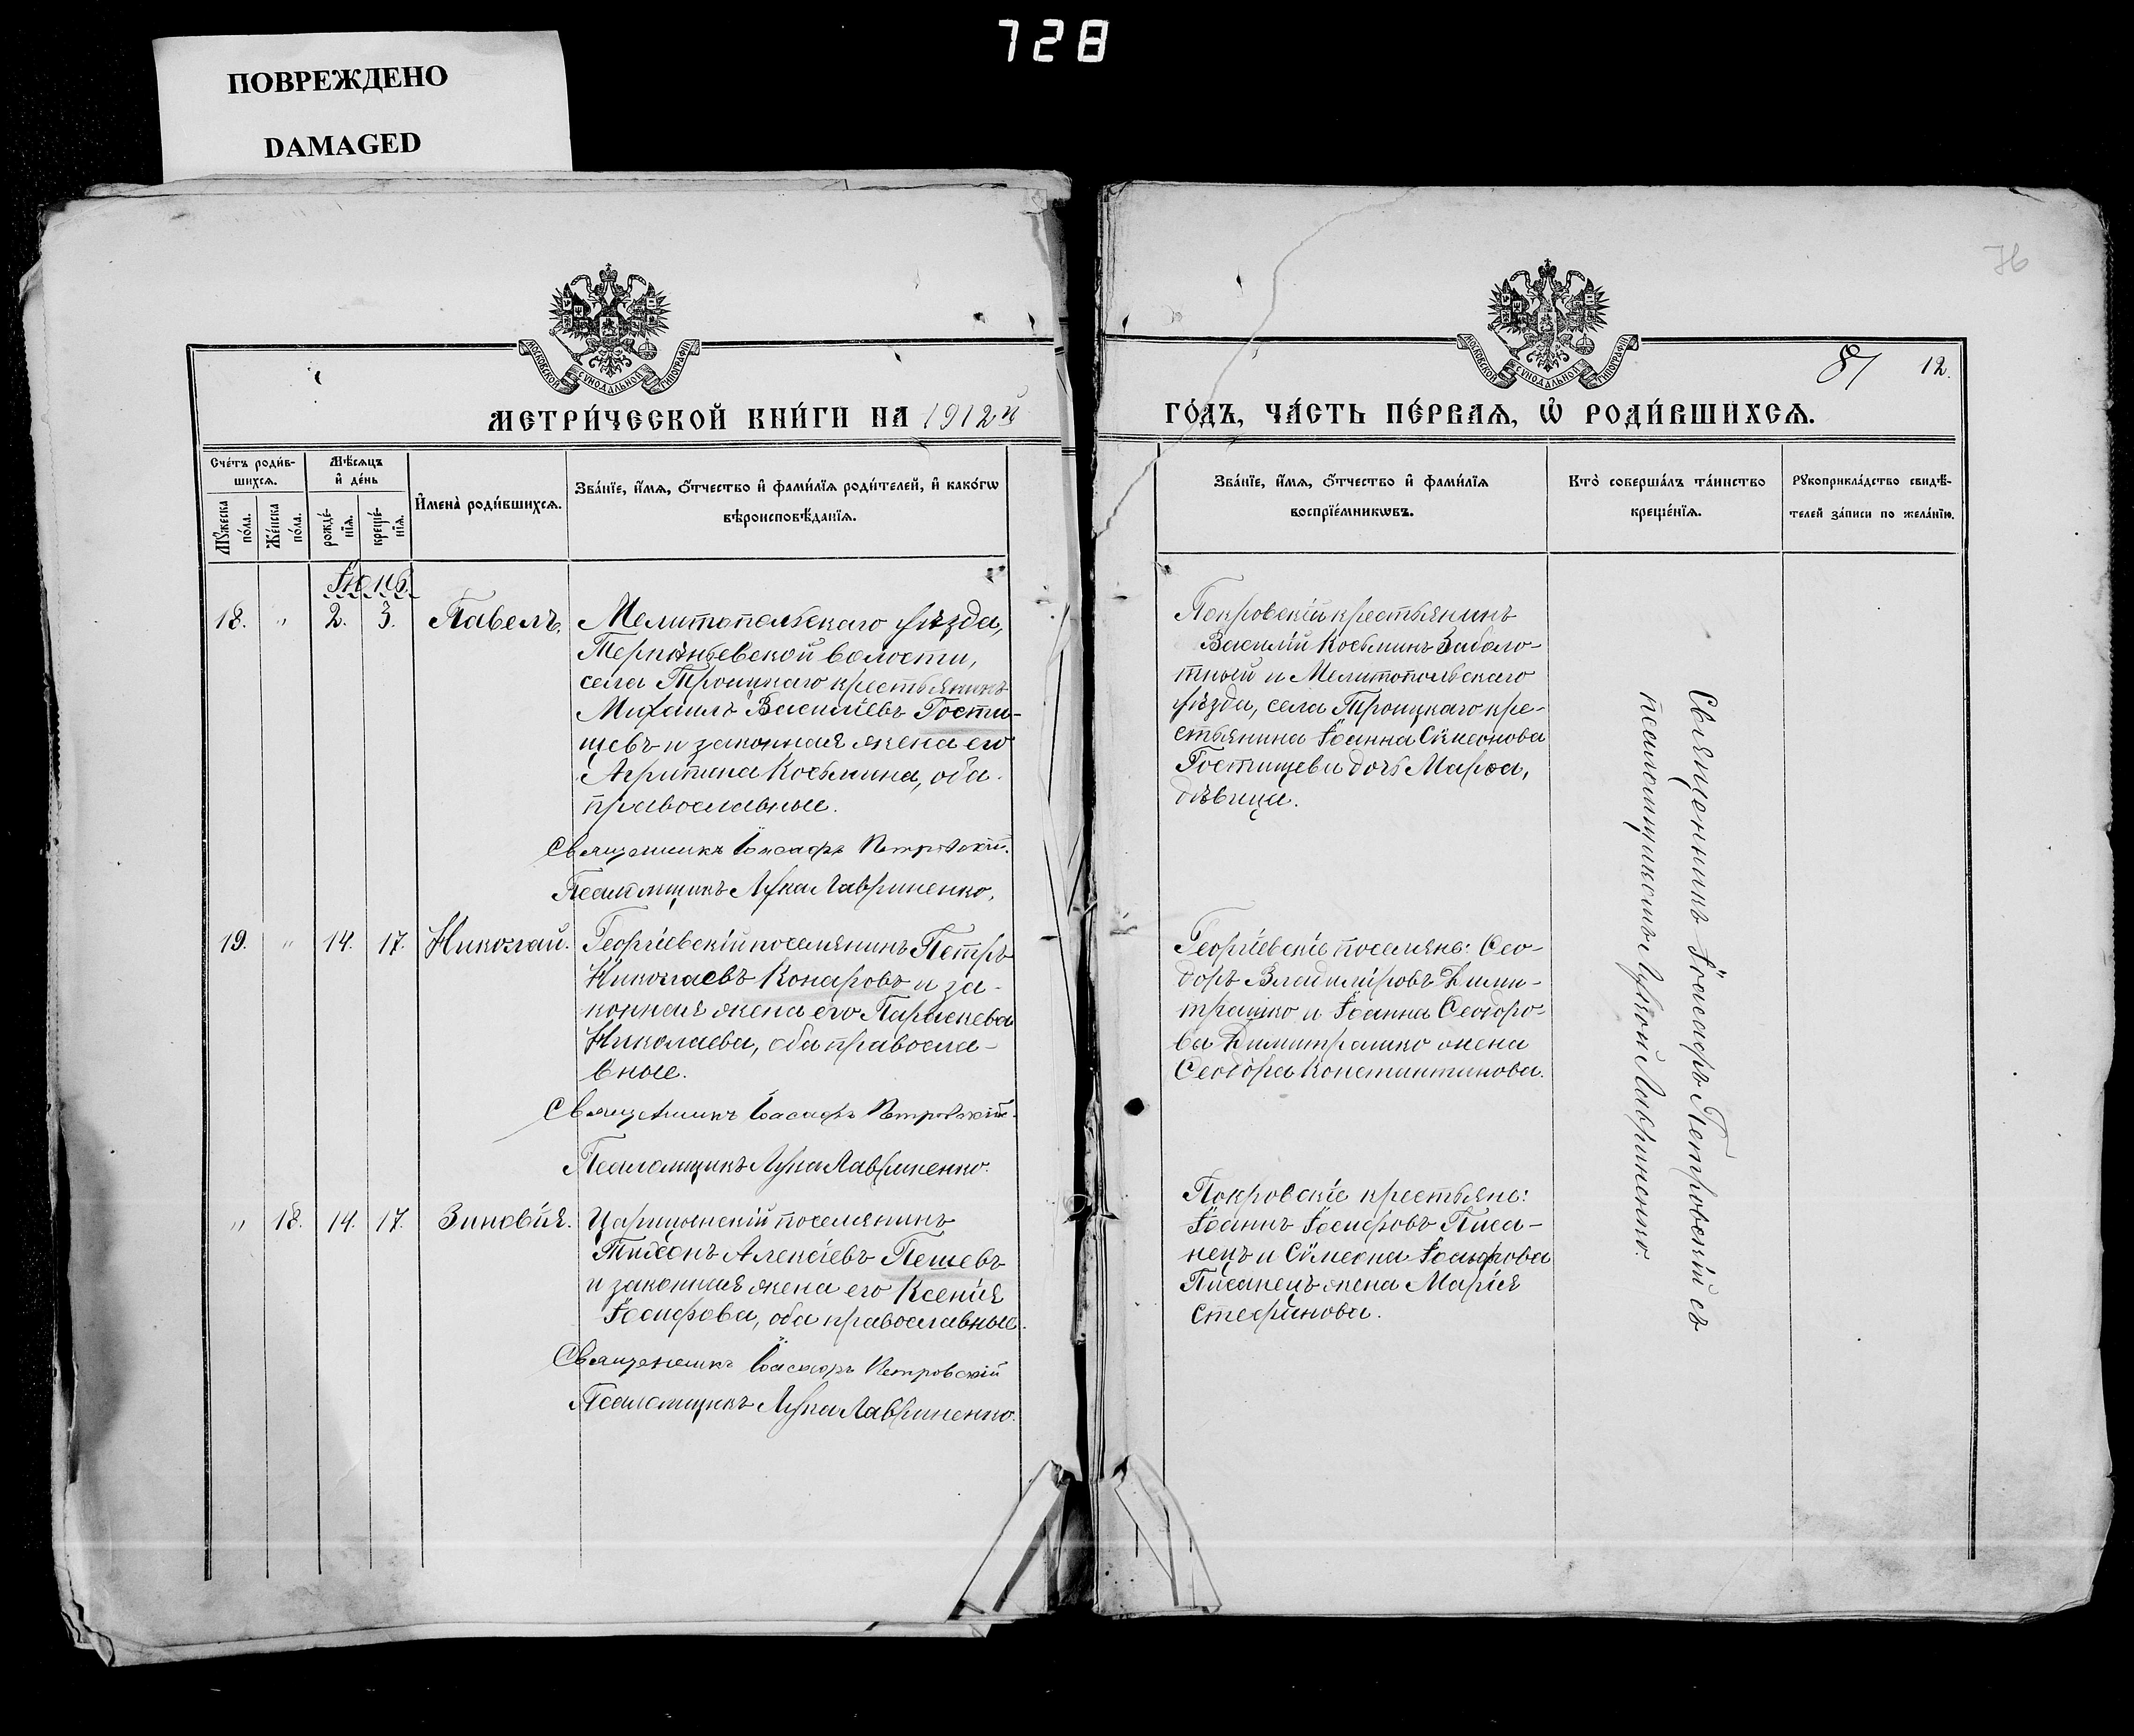 728
ПОВРЕЖДЕНО
DAMAGED
76
МОСКОВСКОЙ СѴНОДАЛЬНОЙ ТИПОГРАФІИ
МОСКОВСКОЙ СѴНОДАЛЬНОЙ ТИПОГРАФІИ
81 12.
МЕТРИ́ЧЕСКОЙ КНИ́ГИ НА 1912й
ГО́ДЪ, ЧА́СТЬ ПЕ́РВАЯ, Ѿ РОДИ́ВШИХСЯ.
Сче́тъ роди́в-
шихся.
Мѣ́сяцъ
и де́нь
Мꙋ́жеска по́ла.
Же́нска по́ла.
рожде́-нїя.
креще́-нїя.
И҆мена̀ роди́вшихся.
Зва́нїе, и҆́мя, ѻ҆́тчество и҆ фами́лїя роди́телей, и҆ како́гѡ
вѣроисповѣ́данїя.
Зва́нїе, и҆́мя, ѻ҆́тчество и҆ фами́лїя
воспрїе́мникѡвъ.
Кто̀ соверша́лъ та́инство
креще́нїя.
Рꙋкоприкла́дство свидѣ́-
телей за́писи по жела́нїю.
Іюнь.
18. " 2. 3. Павелъ.
Мелитопольскаго уѣзда,
Терпѣньевской волости,
села Троицкаго крестьянинъ
Михаилъ Василіевъ Гости-
щевъ и законная жена его
Агрипина Косьмина, оба
православные.
Священникъ Іоасафъ Петровскій.
Псаломщикъ Лука Лавриненко.
Покровскій крестьянинъ
Василій Косьминъ Заболо-
тный и Мелитопольскаго
уѣзда, села Троицкаго кре-
стьянина Іоанна Сѵмеонова
Гостищева дочь Марѳа,
дѣвица.
Священникъ Іоасафъ Петровскій съ
псаломщикомъ Лукой Лавриненко.
19. " 14. 17. Николай.
Георгіевскій поселянинъ Петръ
Николаевъ Конаровъ и за-
конная жена его Параскева
Николаева, оба правосла-
вные.
Священникъ Іоасафъ Петровскій.
Псаломщикъ Лука Лавриненко.
Георгіевскіе поселяне: Ѳео-
доръ Владиміровъ Дими-
трашко и Іоанна Ѳеодоро-
ва Димитрашко жена
Ѳеодора Константинова.
" 18. 14. 17. Зиновія.
Царицынскій поселянинъ
Тихонъ Алексіевъ Пешевъ
и законная жена его Ксенія
Іосифова, оба православные.
Священникъ Іоасафъ Петровскій
Псаломщикъ Лука Лавриненко.
Покровскіе крестьяне:
Іоаннъ Іосифовъ Писа-
нецъ и Сѵмеона Іосифова
Писанецъ жена Марія
Стефанова.